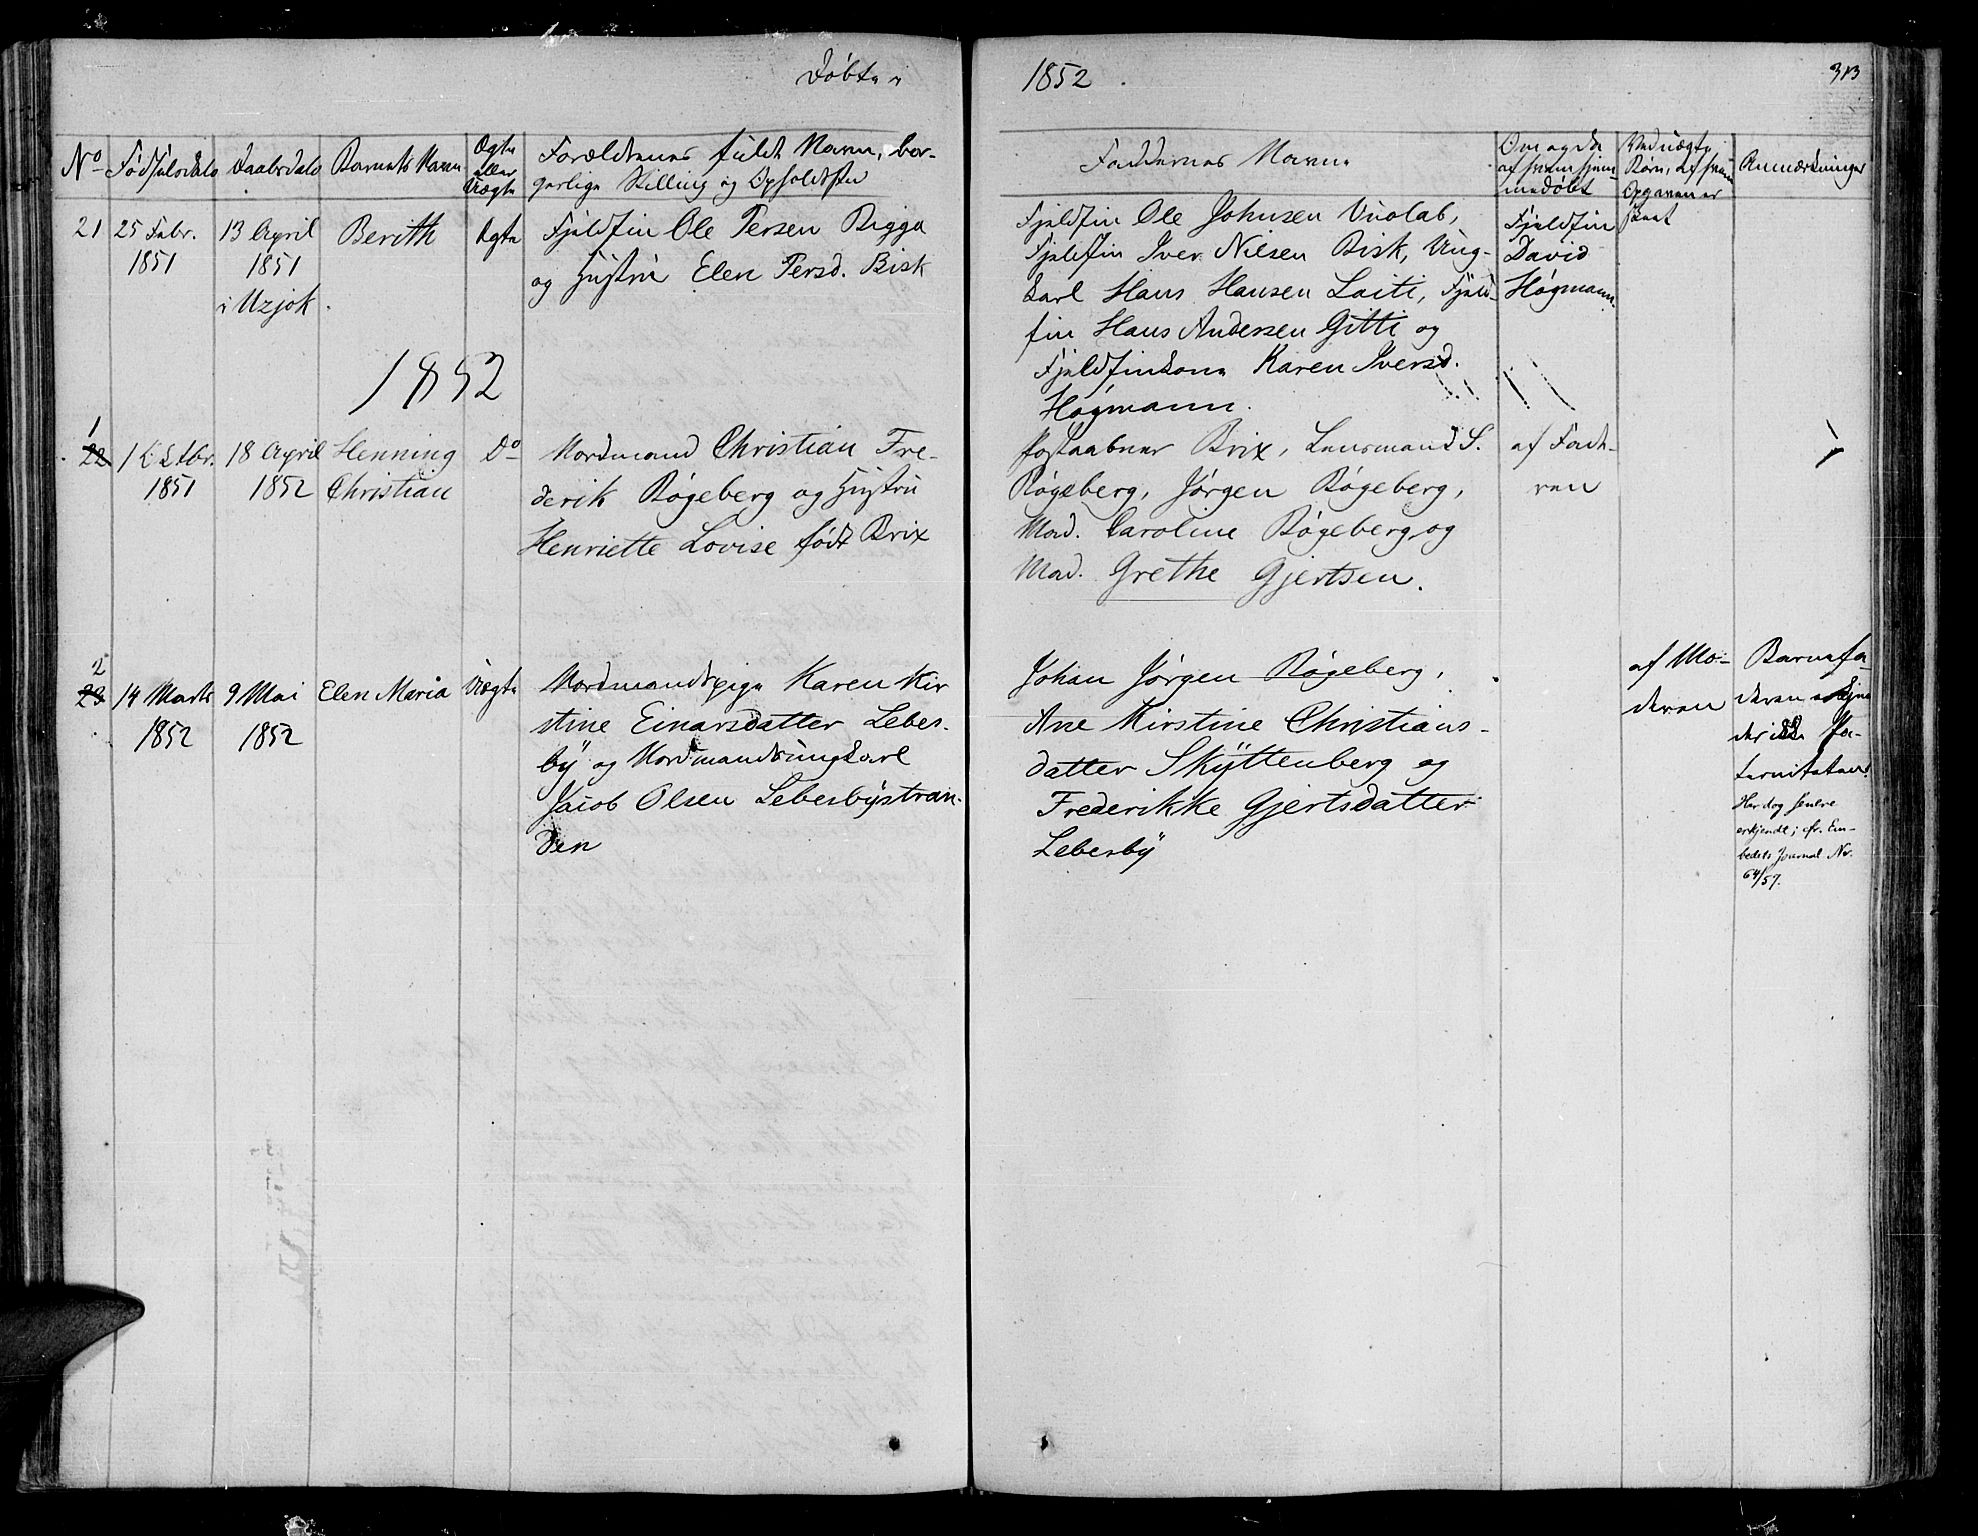 Døbte i
1852
313
No
Fødselsdato
Daabsdato
Barnets Navn
Ægte
eller
Uægte
Forældrenes fulde Navn, bor-
gerlige Stilling og Opholdssted
Faddernes Navne
Om og da
af hvem hjem-
medøbt
Ved uægte
Børn, af hvem
Opgaven er
skeet
Anmærkninger
21
25 Febr.
1851
13 April
1851
i Uzjok.
Berith
Ægte
Fjeldfin Ole Persen Bigga
og Hustru Elen Persd. Bisk
Fjeldfin Ole Johnsen Vuolab,
Fjeldfin Iver Nilsen Bisk, Ung-
karl Hans Hansen Laiti, Fjeld-
fin Hans Andersen Gitti og
Fjeldfinkone Karen Iversd.
Høgmann.
Fjeldfin
David
Høgmann.
1852
1
22
1851
18 April
1852
Henning
Christian
Do
Nordmand Christian Fre-
derik Røgeberg og Hustru
Henriette Lovise født Brix
Postaabner Brix, Lensmand S.
Røgeberg, Jørgen Røgeberg,
Mad. Caroline Røgeberg og
Mad. Grethe Gjertsen.
af Fade-
ren
2
23
14 Marts
1852
9 Mai
1852
Elen Maria
Uægte
Nordmandspige Karen Kir
stine Einarsdatter Lebes-
by og Nordmandsungkarl
Jacob Olsen Lebesbystran-
den
Johan Jørgen Røgeberg,
Ane Kirstine Christians-
datter Skyttenberg og
Frederikke Gjertsdatter
Lebesby
af Mo-
deren
Barnefa-
deren erkjen
der ikke Pa-
terniteten.
Har dog senere
erkjendt; cfr. Em-
bedets Journal No.
64/57.